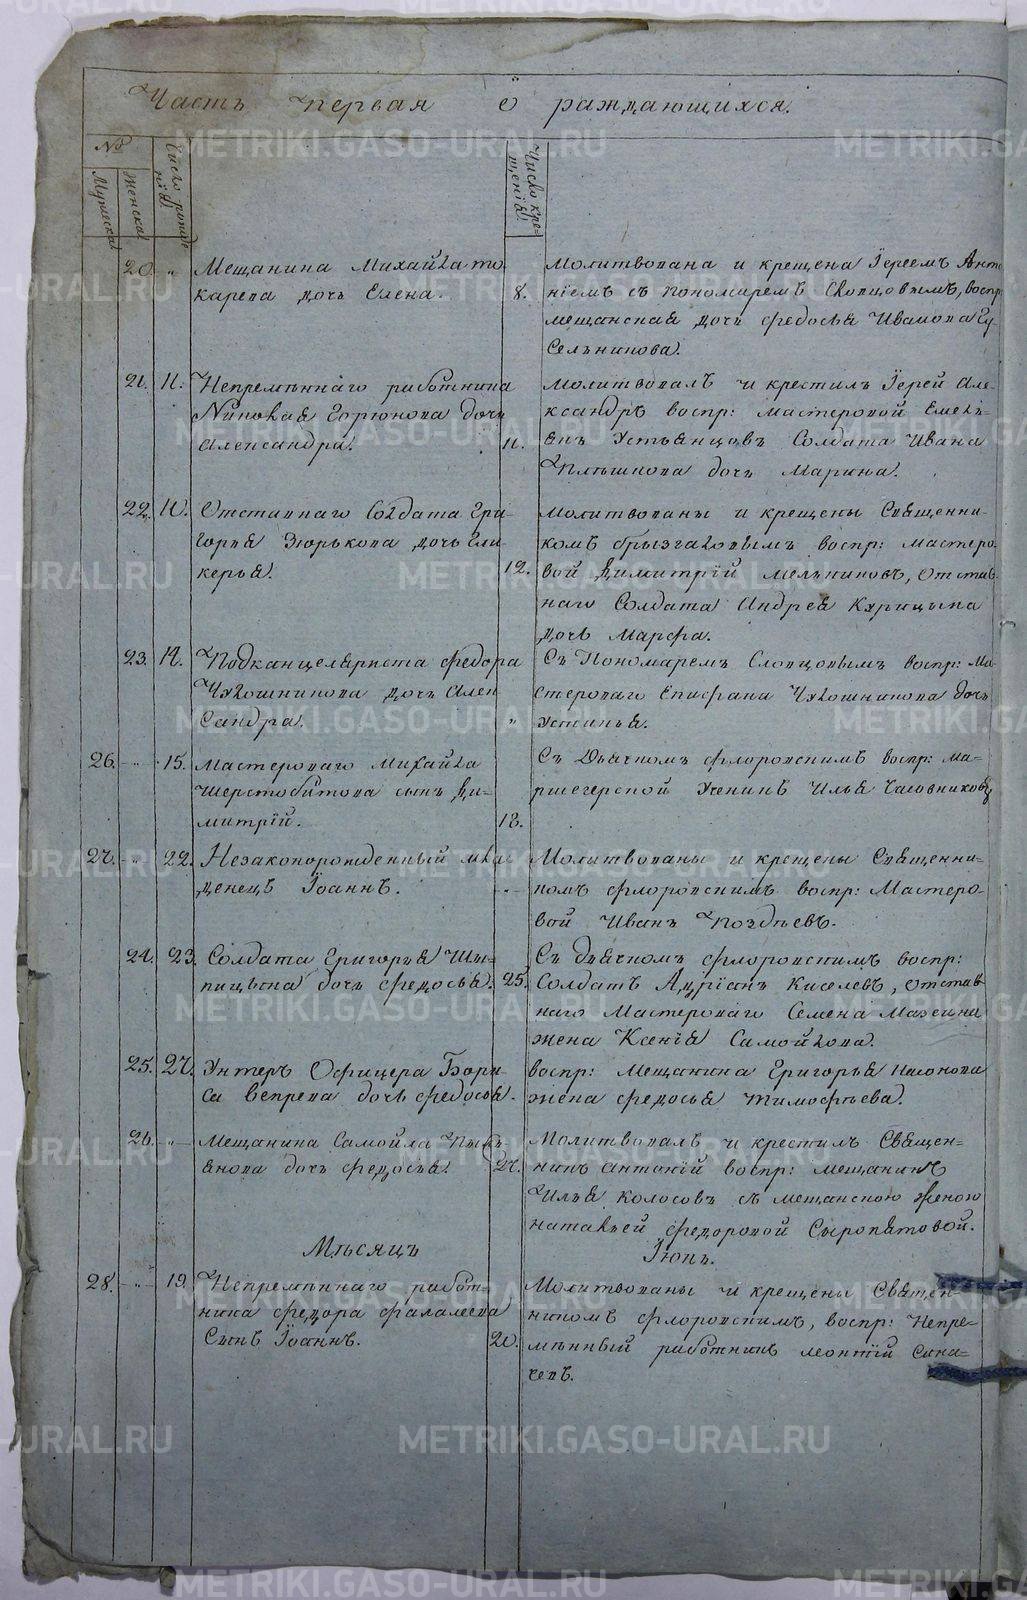 Часть первая о раждающихся.
№
Мужеска
Женска
Число рожде
нія
Число кре-
щенія
20. " Мещанина Михайла то
карева дочь Елена.
8.
Молитвована и крещена Іереемъ Анто
ніемъ съ пономаремъ Словцовымъ, воспр
мещанская дочь Федосья Иванова Гу
сельникова.
21. 11. Непремѣннаго работника
Горюнова дочь
Александра.
11.
Молитвовалъ и крестилъ Іерей Але-
ксандръ воспр: мастеровой Емель-
янъ Устьянцовъ Солдата Ивана
Плѣшкова дочь Марина.
22. 10. Отставнаго Солдата Гри-
горья Зюрькова дочь Гли-
керья.
12.
Молитвованы и крещены Священни-
комъ брызгаловымъ воспр: мастеро-
вой Димитрій Мельниковъ, отстав-
наго Солдата Андрея Курицына
дочь Марфа.
23. 14. Подканцеляриста Федора
Чувошникова дочь Алек
сандра.
"
Съ Пономаремъ Словцовымъ воспр: Ма-
стероваго Епифана Чувошникова дочь
Устинья.
26. " 15. Мастероваго Михайла
Шерстобитова сынъ Ди-
митрій.
18.
Съ Дьячкомъ Флоровскимъ воспр: Ма-
ршегерской Ученикъ Илья Часовниковъ
27. " 22. Незаконорожденный мла-
денецъ Іоаннъ.
"
Молитвованы и крещены Священни-
комъ Флоровскимъ воспр: Мастеро-
вой Иванъ Поздѣевъ.
24. 23. Солдата Григорья Шы-
пицына дочь Федосья.
25.
Съ дьячкомъ Флоровскимъ воспр:
Солдатъ Адріанъ Киселевъ, отстав-
наго Мастероваго Семена Махеина
жена Ксенія Самойлова.
25. 27. Унтеръ Офицера Бори-
са Вепрева дочь Федосья.
воспр: Мещанина Григорья Насонова
жена Федосья Тимофѣева.
26. " Мещанина Самойла Пья-
нова дочь Федосья.
27.
Молитвовалъ и крестилъ Священ-
никъ Антоній воспр: мещанинъ
Илья Колосовъ съ мещанскою женою
натальей Федоровой Сыропятовой.
Мѣсяцъ Іюнь.
28. " 19. Непремѣннаго работ-
ника Федора Фалалеева
Сынъ Іоаннъ.
20.
Молитвованы и крещены Священ-
никомъ Флоровскимъ, воспр: Непре-
мѣнный работникъ Леонтій Сига-
чевъ.
METRIKI.GASO-URAL.RU